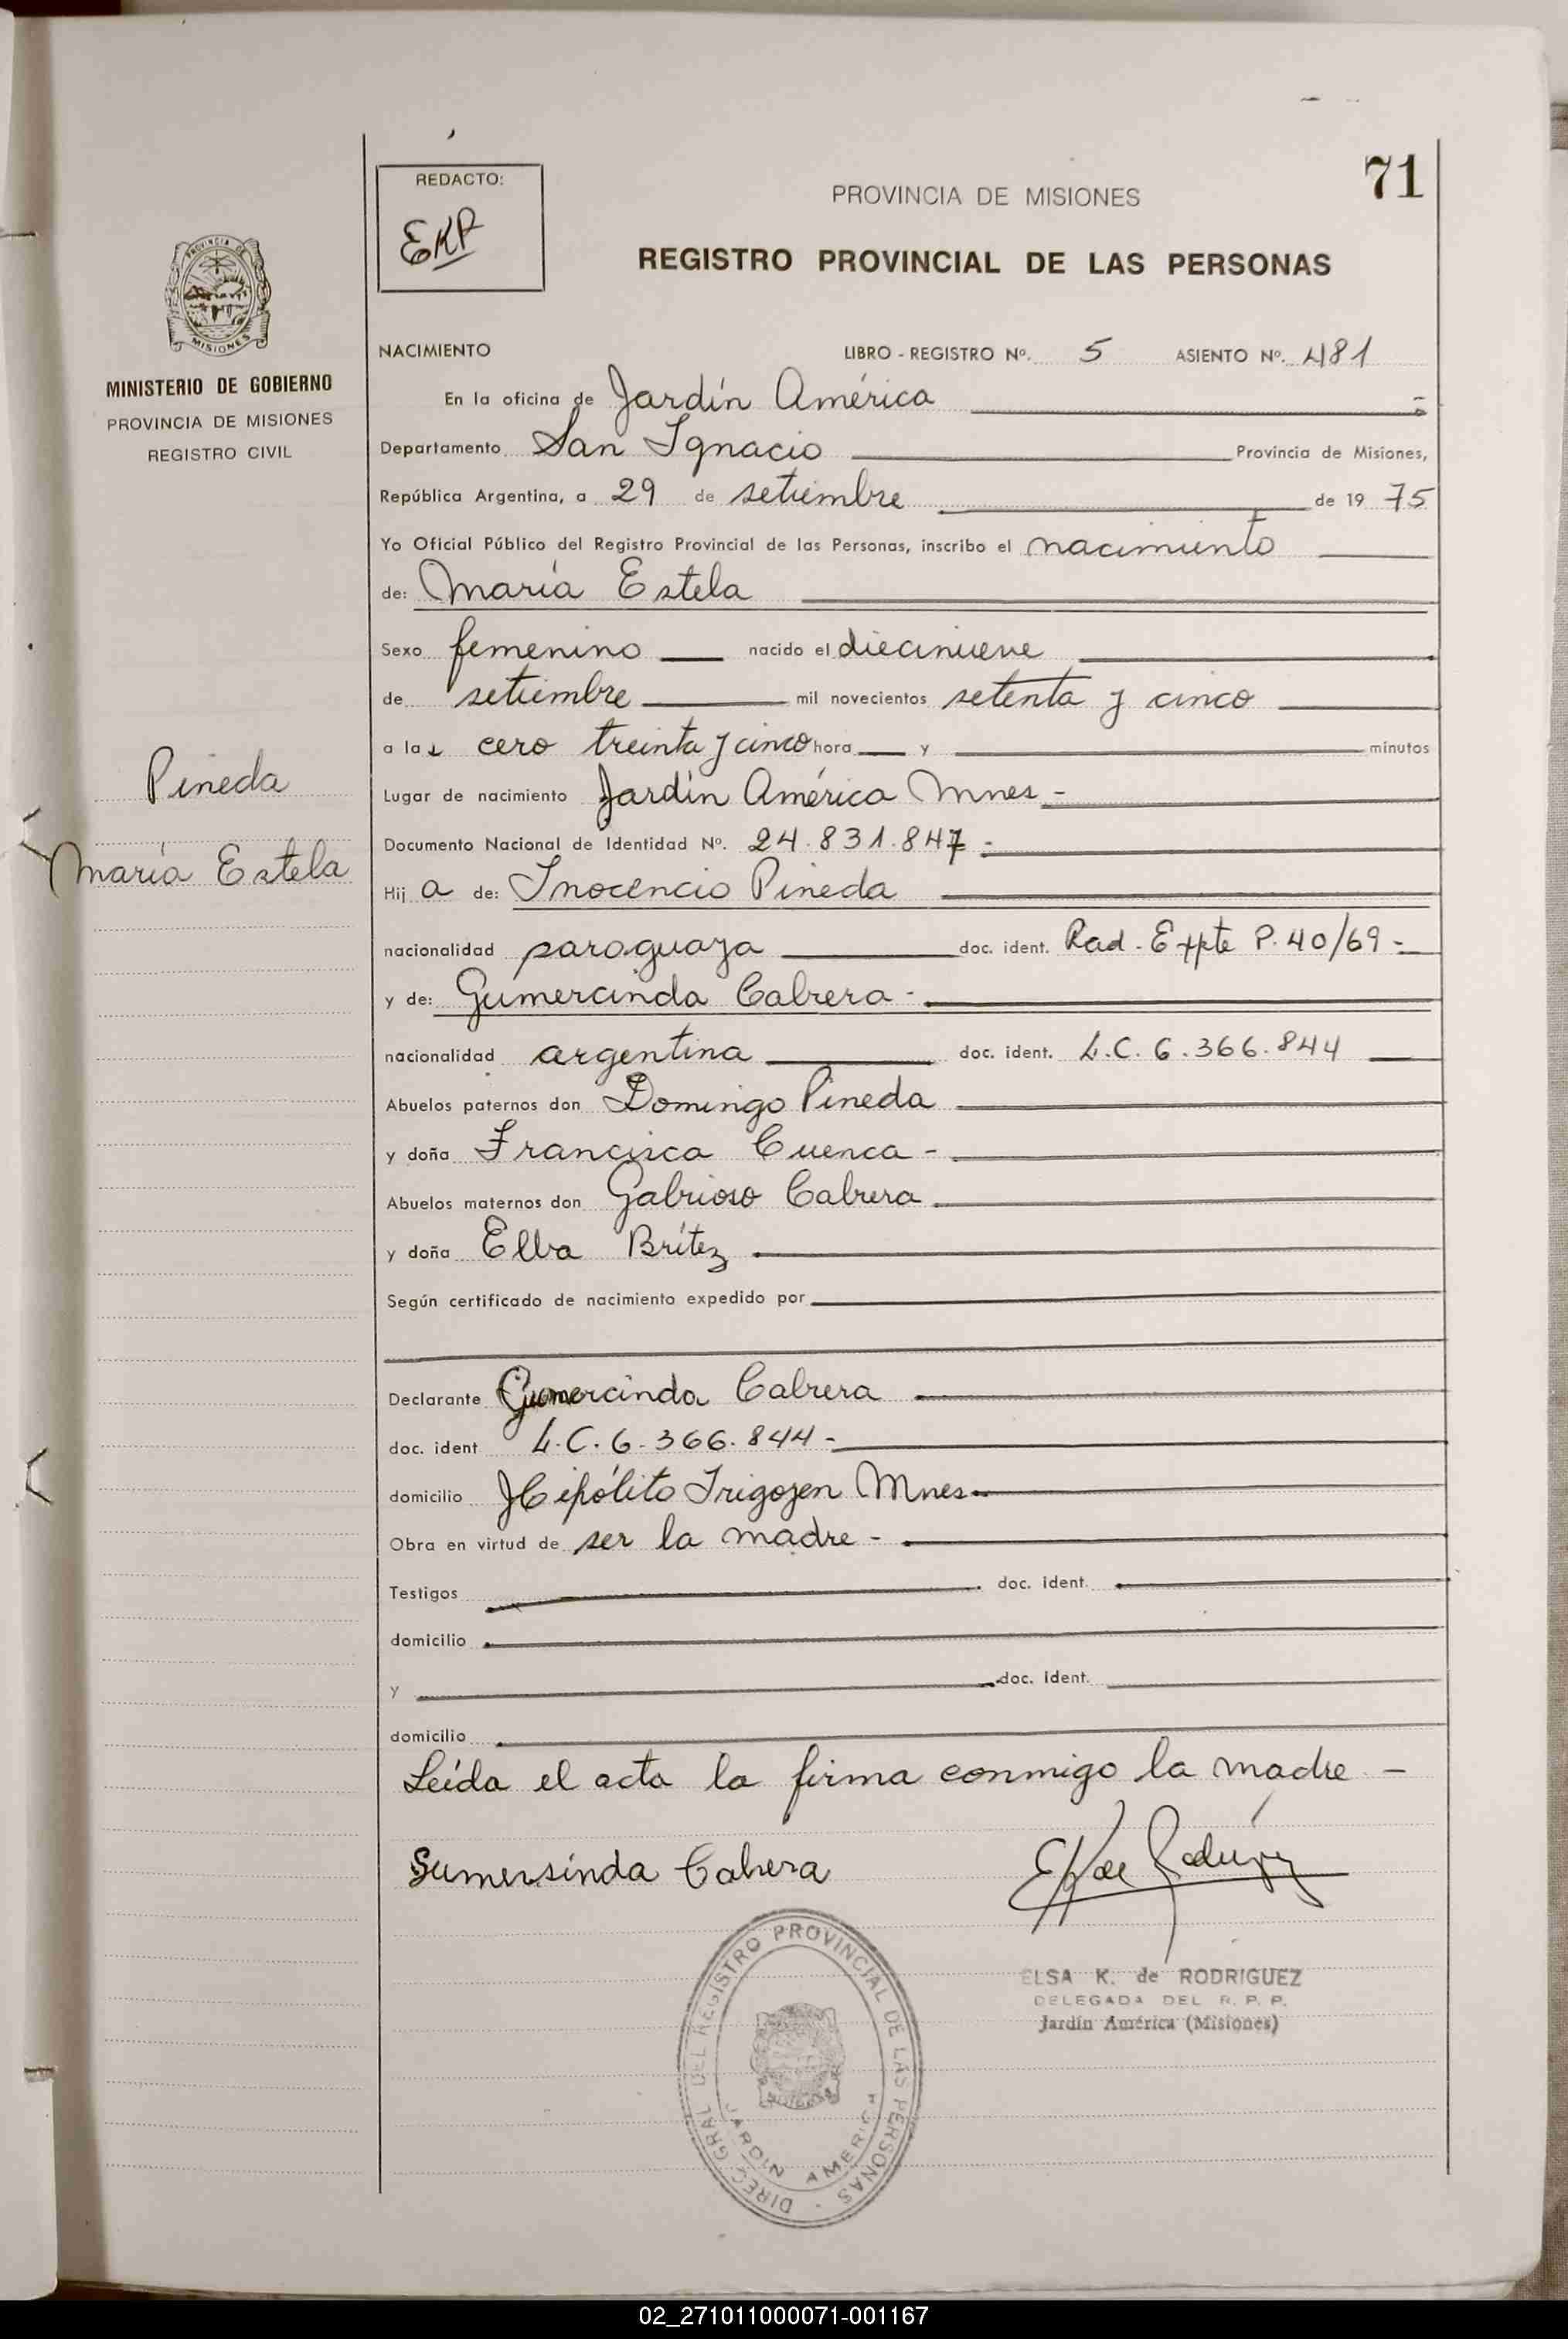 71
REDACTO:
EKR
PROVINCIA DE MISIONES
REGISTRO PROVINCIAL DE LAS PERSONAS
PROVINCIA DE
MISIONES
MINISTERIO DE GOBIERNO
PROVINCIA DE MISIONES
REGISTRO CIVIL
NACIMIENTO LIBRO - REGISTRO Nº. 5 ASIENTO Nº. 481
En la oficina de Jardín América
Departamento San Ignacio Provincia de Misiones,
República Argentina, a 29 de setiembre de 19 75
Yo Oficial Público del Registro Provincial de las Personas, inscribo el nacimiento
de: María Estela
Sexo femenino nacido el diecinueve
de setiembre mil novecientos setenta y cinco
a las cero treinta y cinco hora y minutos
Pineda
María Estela
Lugar de nacimiento Jardín América Mnes -
Documento Nacional de Identidad Nº. 24.831.847 -
Hij a de: Inocencio Pineda
nacionalidad paraguaya doc. ident. Rad. Expte P. 40/69 -
y de: Gumercinda Cabrera -
nacionalidad argentina doc. ident. L.C. 6.366.844
Abuelos paternos don Domingo Pineda
y doña Francisca Cuenca -
Abuelos maternos don Gabrioso Cabrera
y doña Elba Brítez
Según certificado de nacimiento expedido por
Declarante Gumercinda Cabrera
doc. ident L.C. 6.366.844 -
domicilio Hipólito Irigoyen Mnes -
Obra en virtud de ser la madre -
Testigos doc. ident.
domicilio
y doc. ident.
domicilio
Leída el acta la firma conmigo la madre -
Gumersinda Cabrera
EK de Rodríguez
ELSA K. de RODRIGUEZ
DELEGADA DEL R. P. P.
Jardín América (Misiones)
DIREC. GRAL. DEL REGISTRO PROVINCIAL DE LAS PERSONAS
JARDIN AMERICA
02_271011000071-001167